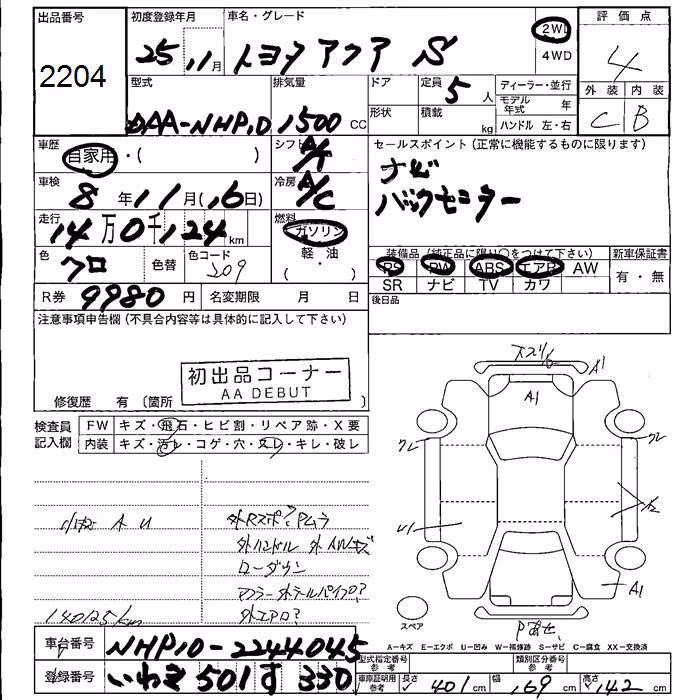 出品番号
2204
初度登録年月
25.11月
車名・グレード
トヨタ アクア S
2WD
4WD
評価点
4
外装 内装
C B
型式
DAA-NHP10
排気量
1500 CC
ドア
形状
定員
5人
積載
kg
ディーラー・並行
モデル年式 年
ハンドル 左・右
車歴
自家用・( )
シフト
A/T
車検
8年11月(16日)
冷房
A/C
走行
14万0千124km
燃料
ガソリン
軽・油
色
クロ
色替
色コード
209
R券 9980円
名変期限 月 日
セールスポイント(正常に機能するものに限ります)
ナビ
バックモニター
装備品(純正品に限り○をつけて下さい)
PS PW ABS エアB AW
SR ナビ TV カワ
新車保証書
有・無
後日品
注意事項申告欄(不具合内容等は具体的に記入して下さい)
初出品コーナー
AA DEBUT
修復歴 有 〔箇所
検査員記入欄
FW キズ・飛石・ヒビ割・リペア跡・X要
内装 キズ・汚レ・コゲ・穴・スレ・キレ・破レ
小キズ A U
外Rスポ?Pムラ
外ハンドル 外AWキズ
ローダウン
マフラー外テールパイプ?
外エアロ?
140125km
スリキ
A1
A1
クレ
クレ
U1
A1
Pあせ
スペア
A-キズ E-エクボ U-凹み W-補修跡 S-サビ C-腐食 XX-交換済
車台番号 NHP10-2244045
登録番号 いわき501す330
型式指定番号 参考
類別区分番号 参考
車庫証明用 参考
長さ 401cm
幅 169cm
高さ 142cm